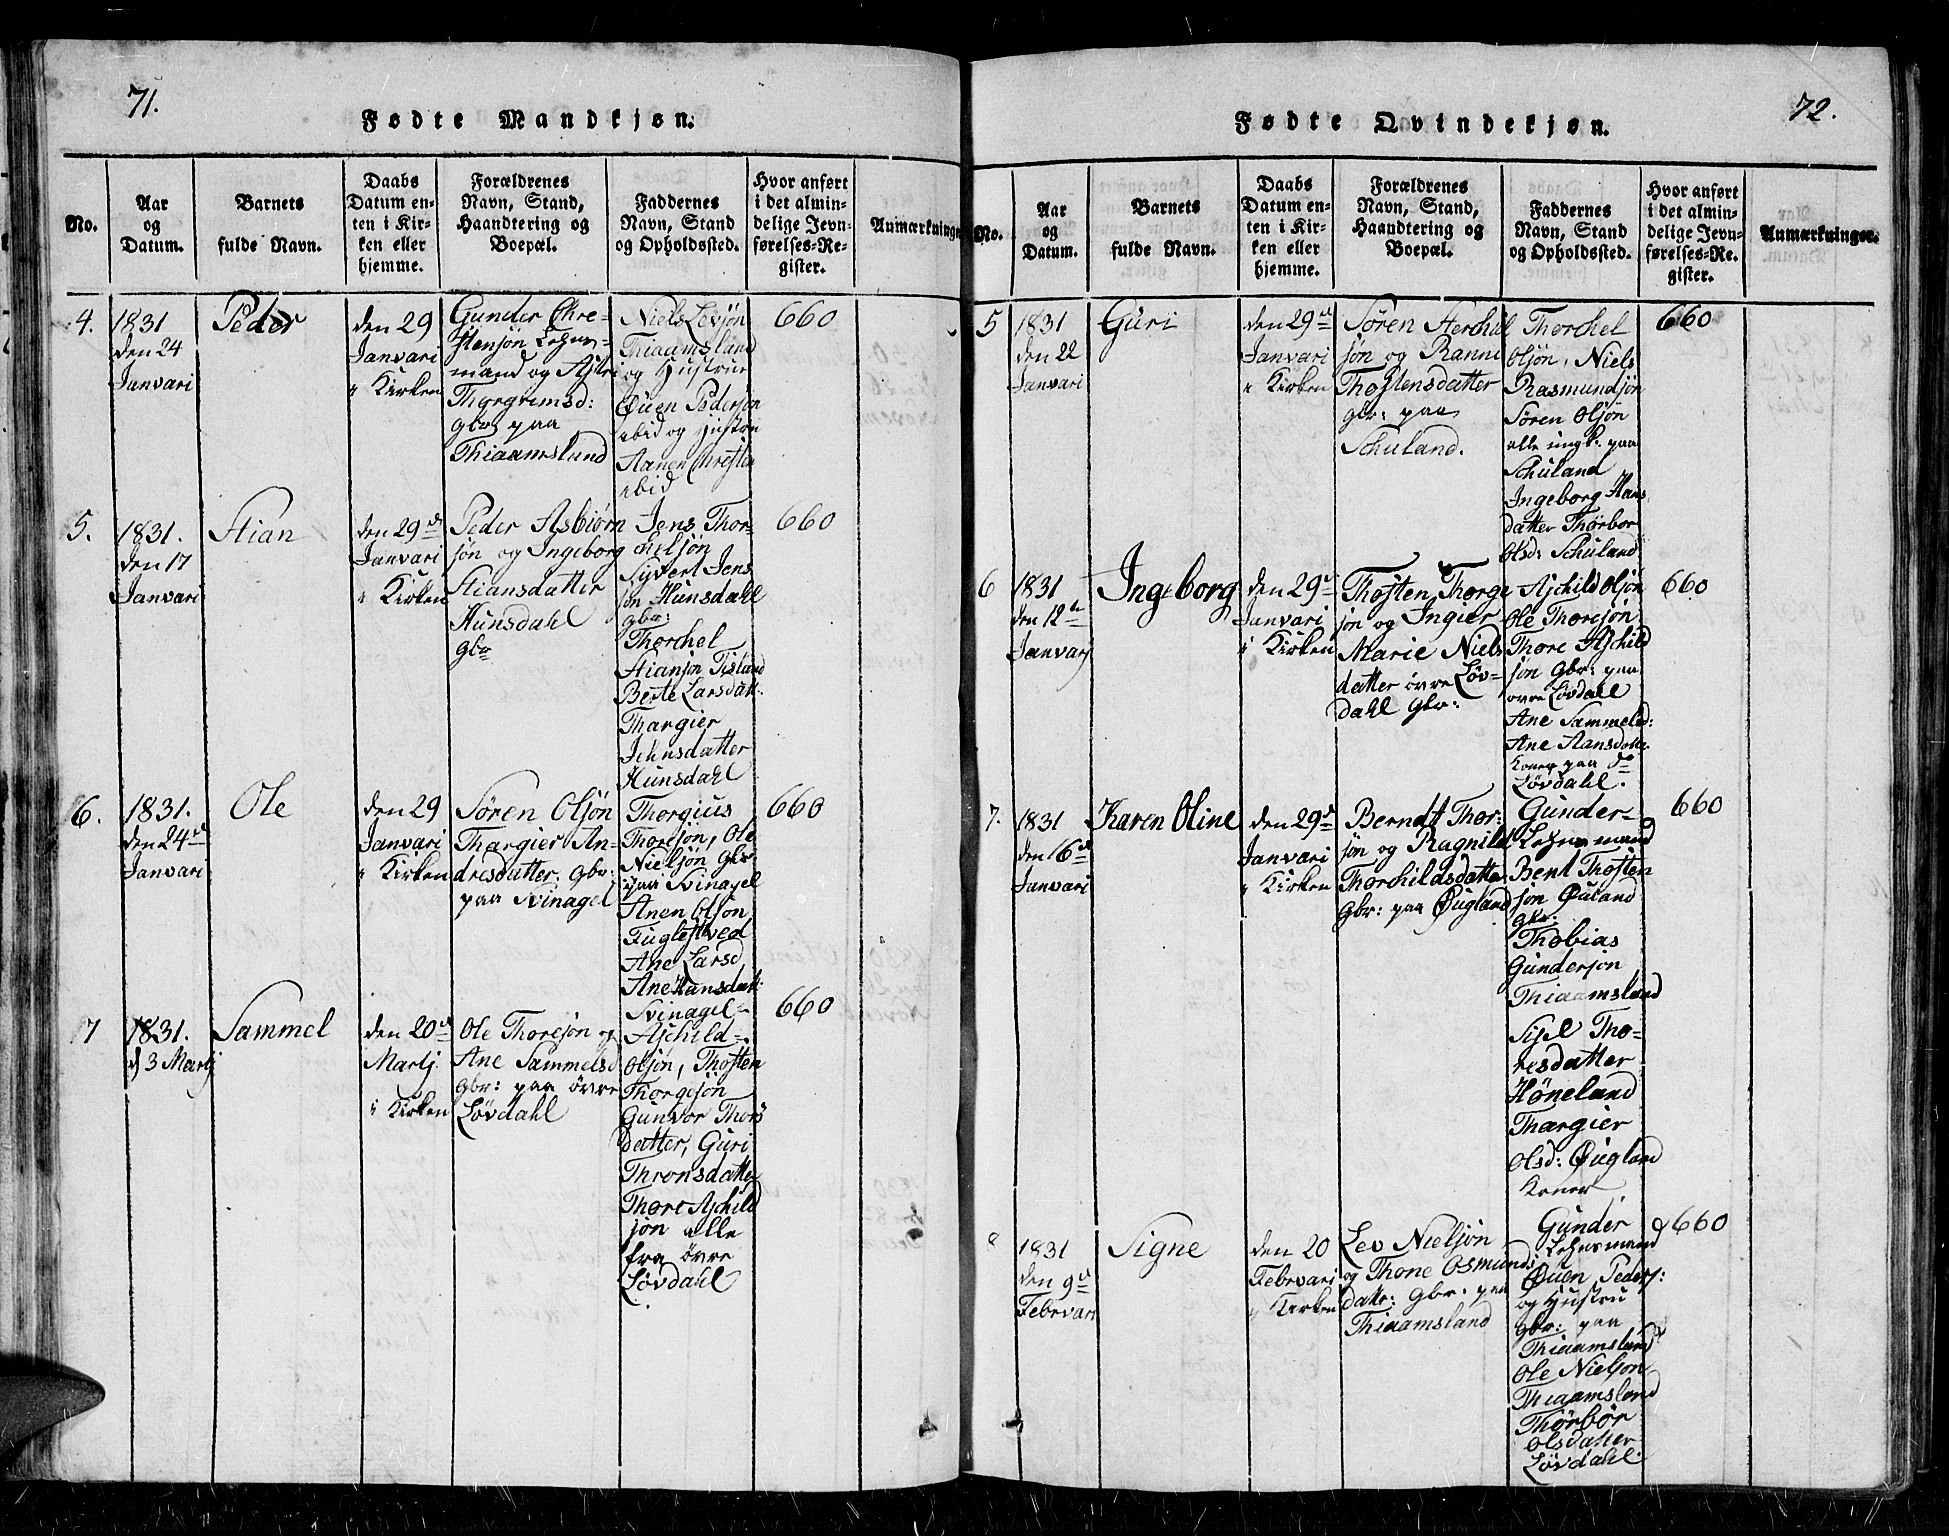 71.
Fødte Mandkjøn.
No.
Aar
og
Datum.
Barnets
fulde Navn.
Daabs
Datum en-
ten i Kir-
ken eller
hjemme.
Forældrenes
Navn, Stand,
Haandtering og
Boepæl.
Faddernes
Navn, Stand
og Opholdssted.
Hvor anført
i det almin-
delige Jevn-
førelses-Re-
gister.
Anmærkninger
4.
1831
den 24
Janvari
Peder
den 29
Janvari
i Kirken
Gunder Chre-
stensøn Lehns-
mand og Astri
Thorgrimsd:
gbr paa
Thiaamsland
Niels Levsøn
Thiaamsland
og Hustrue
Øuen Pedersen
ibid og Hustru
Aanen Christen
ibid
660
5.
1831.
den 17
Janvari
Stian
den 29d
Janvari
i Kirken
Peder Asbiørn
søn og Ingeborg
Stiansdatter
Hunsdahl
Gbr
Jens Thor-
chelsøn
Syvert Jens
søn Hunsdahl
gbr:
Thorchel
Stiansøn Tisland
Berte Larsdatt:
Thargier
Johnsdatter
Hunsdahl
660
6.
1831.
den 24d
Janvari
Ole
den 29
Janvari
i Kirken
Søren Olsøn
Thargier An-
dresdatter: Gbr:
paa Svinagel
Thorgius
Thoresøn, Ole
Nielsøn Gbr
paa Svinagel
Anen Olsøn
Fuglestved
Ane Larsd,
Ane Hansdatt:
Svinagel
660
7
1831.
d 3 Martj
Sammel
den 20d
Martj
i Kirken
Ole Thoresøn og
Ane Sammelsd
Gbr: paa øvre
Løvdahl
Aschild
Olsøn, Thosten
Thorgesøn
Gunvor Thors
datter, Guri
Thronsdatter
Thore Aschild
søn alle
fra øvre
Løvdahl
660
72.
Fødte Qvindekjøn.
No.
Aar
og
Datum.
Barnets
fulde Navn.
Daabs
Datum en-
ten i Kir-
ken eller
hjemme.
Forældrenes
Navn, Stand,
Haandtering og
Boepæl.
Faddernes
Navn, Stand
og Opholdssted.
Hvor anført
i det almin-
delige Jevn-
førelses-Re-
gister.
Anmærkninger.
5
1831
den 22
Janvari
Guri
den 29d
Janvari
i Kirken
Søren Aerchil
søn og Ranni
Thostensdatter
gbr: paa
Schuland.
Thorchel
Olsøn, Niels
Rasmundsøn
Søren Olsøn
alle ungk: paa
Schuland
Ingeborg Hans
datter Thorbor
Olsd: Schuland
660
6
1831
den 12te
Janvarj
Ingeborg
den 29d
Janvari
i Kirken
Thosten Thorge
søn og Ingier
Marie Niels
datter øvre Løv-
dahl Gbr:
Aschild Olsøn
Ole Thoresøn
Thore Aschild
søn Gbr: paa
ovre Løvdahl
Ane Sammelsd:
Ane Aansdatte
Koner paa do
Løvdahl.
660
7.
1831
den 16d
Janvari
Karen Oline
den 29d
Janvari
i Kirken
Berndt Thor-
søn og Ragnild
Thorchildsdatte
Gbr: paa Øugland
Gunder
Lehnsmand
Bent Thosten
søn Øuland
Gbr:
Thobias
Gundersøn
Thiaamsland
Sisel Tho-
resdatter
Høneland
Thargier
Olsd: Øugland
Koner
660
8
1831
den 9d
Februari
Signe
den 20
Februari
i Kirken
Lev Nielsøn
og Thone Osmunds
datr: Gbr: paa
Thiaamsland
Gunder
Lehnsmand
Øuen Peders:
og Hustru
Gbr: paa
Thiaamsland
Ole Nielsøn
Thiaamsland
Thørbør
Olsdatter
Løvdahl.
660